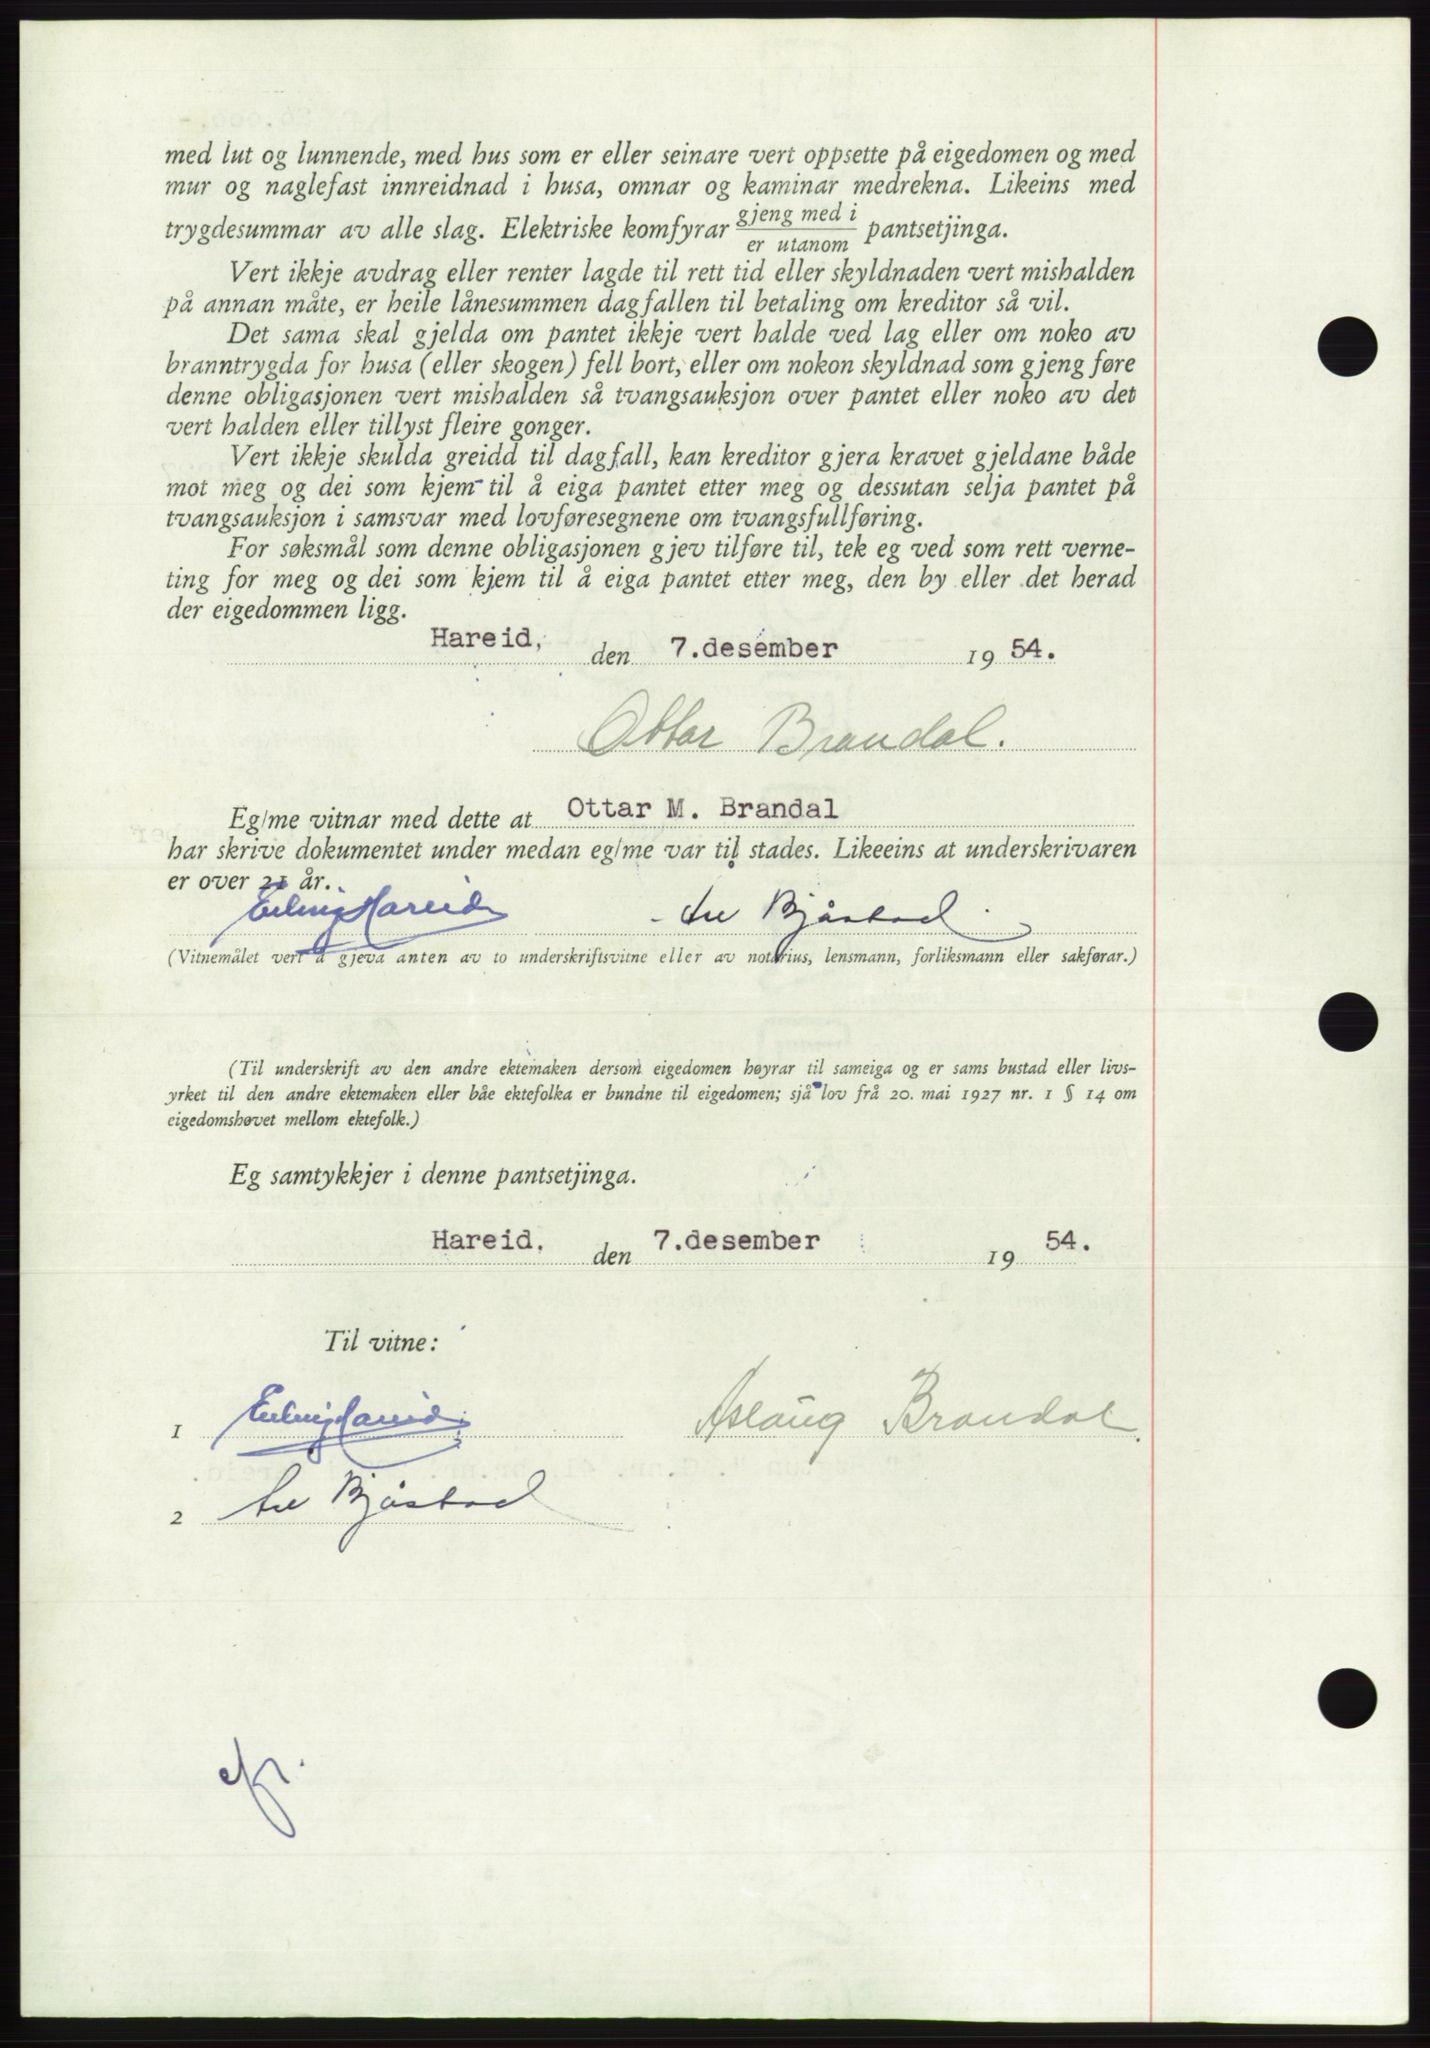 med lut og lunnende, med hus som er eller seinare vert oppsette på eigedomen og med
mur og naglefast innreidnad i husa, omnar og kaminar medrekna. Likeins med
trygdesummar av alle slag. Elektriske komfyrar gjeng med i / er utanom pantsetjinga.
Vert ikkje avdrag eller renter lagde til rett tid eller skyldnaden vert mishalden
på annan måte, er heile lånesummen dagfallen til betaling om kreditor så vil.
Det sama skal gjelda om pantet ikkje vert halde ved lag eller om noko av
branntrygda for husa (eller skogen) fell bort, eller om nokon skyldnad som gjeng føre
denne obligasjonen vert mishalden så tvangsauksjon over pantet eller noko av det
vert halden eller tillyst fleire gonger.
Vert ikkje skulda greidd til dagfall, kan kreditor gjera kravet gjeldane både
mot meg og dei som kjem til å eiga pantet etter meg og dessutan selja pantet på
tvangsauksjon i samsvar med lovføresegnene om tvangsfullføring.
For søksmål som denne obligasjonen gjev tilføre til, tek eg ved som rett verne-
ting for meg og dei som kjem til å eiga pantet etter meg, den by eller det herad
der eigedommen ligg.
Hareid, den 7.desember 1954.
Ottar Brandal.
Eg/me vitnar med dette at Ottar M. Brandal
har skrive dokumentet under medan eg/me var til stades. Likeeins at underskrivaren
er over 21 år.
Erling Hareid Bjåstad
(Vitnemålet vert å gjeva anten av to underskriftsvitne eller av notarius, lensmann, forliksmann eller sakførar.)
(Til underskrift av den andre ektemaken dersom eigedomen høyrar til sameiga og er sams bustad eller livs-
yrket til den andre ektemaken eller båe ektefolka er bundne til eigedomen; sjå lov frå 20. mai 1927 nr. 1 § 14 om
eigedomshøvet mellom ektefolk.)
Eg samtykkjer i denne pantsetjinga.
Hareid, den 7.desember 1954.
Til vitne:
1 Erling Hareid Aslaug Brandal.
2 Bjåstad